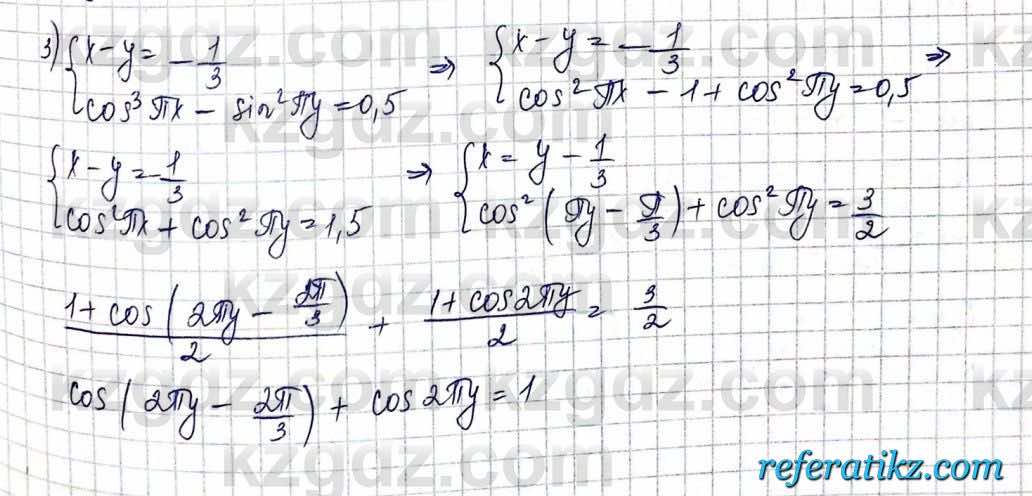 3) { x - y = - 1/3 ⇒ { x - y = - 1/3 ⇒
{ cos³ πx - sin² πy = 0,5 { cos² πx - 1 + cos² πy = 0,5
{ x - y = - 1/3 ⇒ { x = y - 1/3
{ cos² πx + cos² πy = 1,5 { cos² (πy - π/3) + cos² πy = 3/2
(1 + cos (2πy - 2π/3))/2 + (1 + cos 2πy)/2 = 3/2
cos (2πy - 2π/3) + cos 2πy = 1
kzgdz.com
referatikz.com